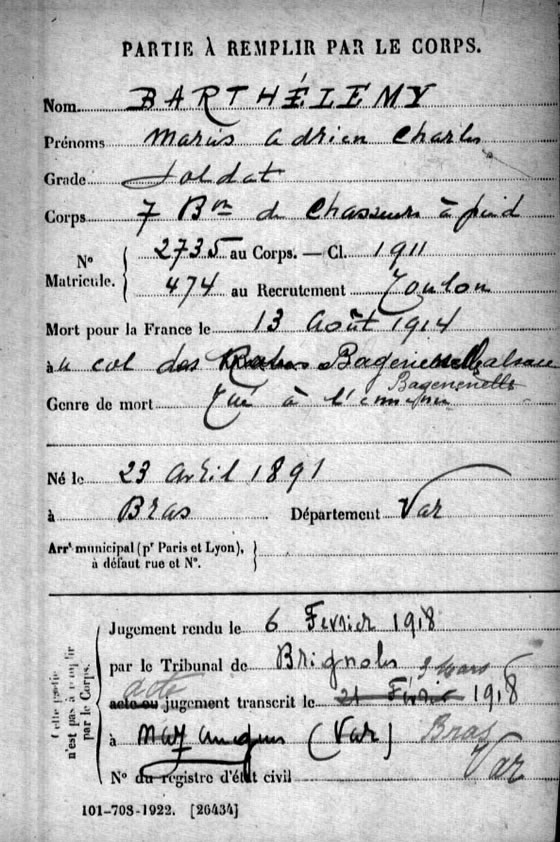 PARTIE À REMPLIR PAR LE CORPS.
Nom BARTHÉLEMY
Prénoms Marius Adrien Charles
Grade Soldat
Corps 7 Bon de Chasseurs à pied
N° Matricule. 2735 au Corps. — Cl. 1911
474 au Recrutement Toulon
Mort pour la France le 13 Août 1914
à u col des Bagenelles alsace
Bagenenelles
Genre de mort Tué à l'ennemi
Né le 23 Avril 1891
à Bras Département Var
Arrt municipal (pr Paris et Lyon),
à défaut rue et N°.
Cette partie n'est pas à remplir par le Corps.
Jugement rendu le 6 Fevrier 1918
par le Tribunal de Brignoles
9 mars
acte
acte ou jugement transcrit le 21 Février 1918
à Mazaugues (Var) Bras
Var
N° du registre d'état civil
101-708-1922. [26434]